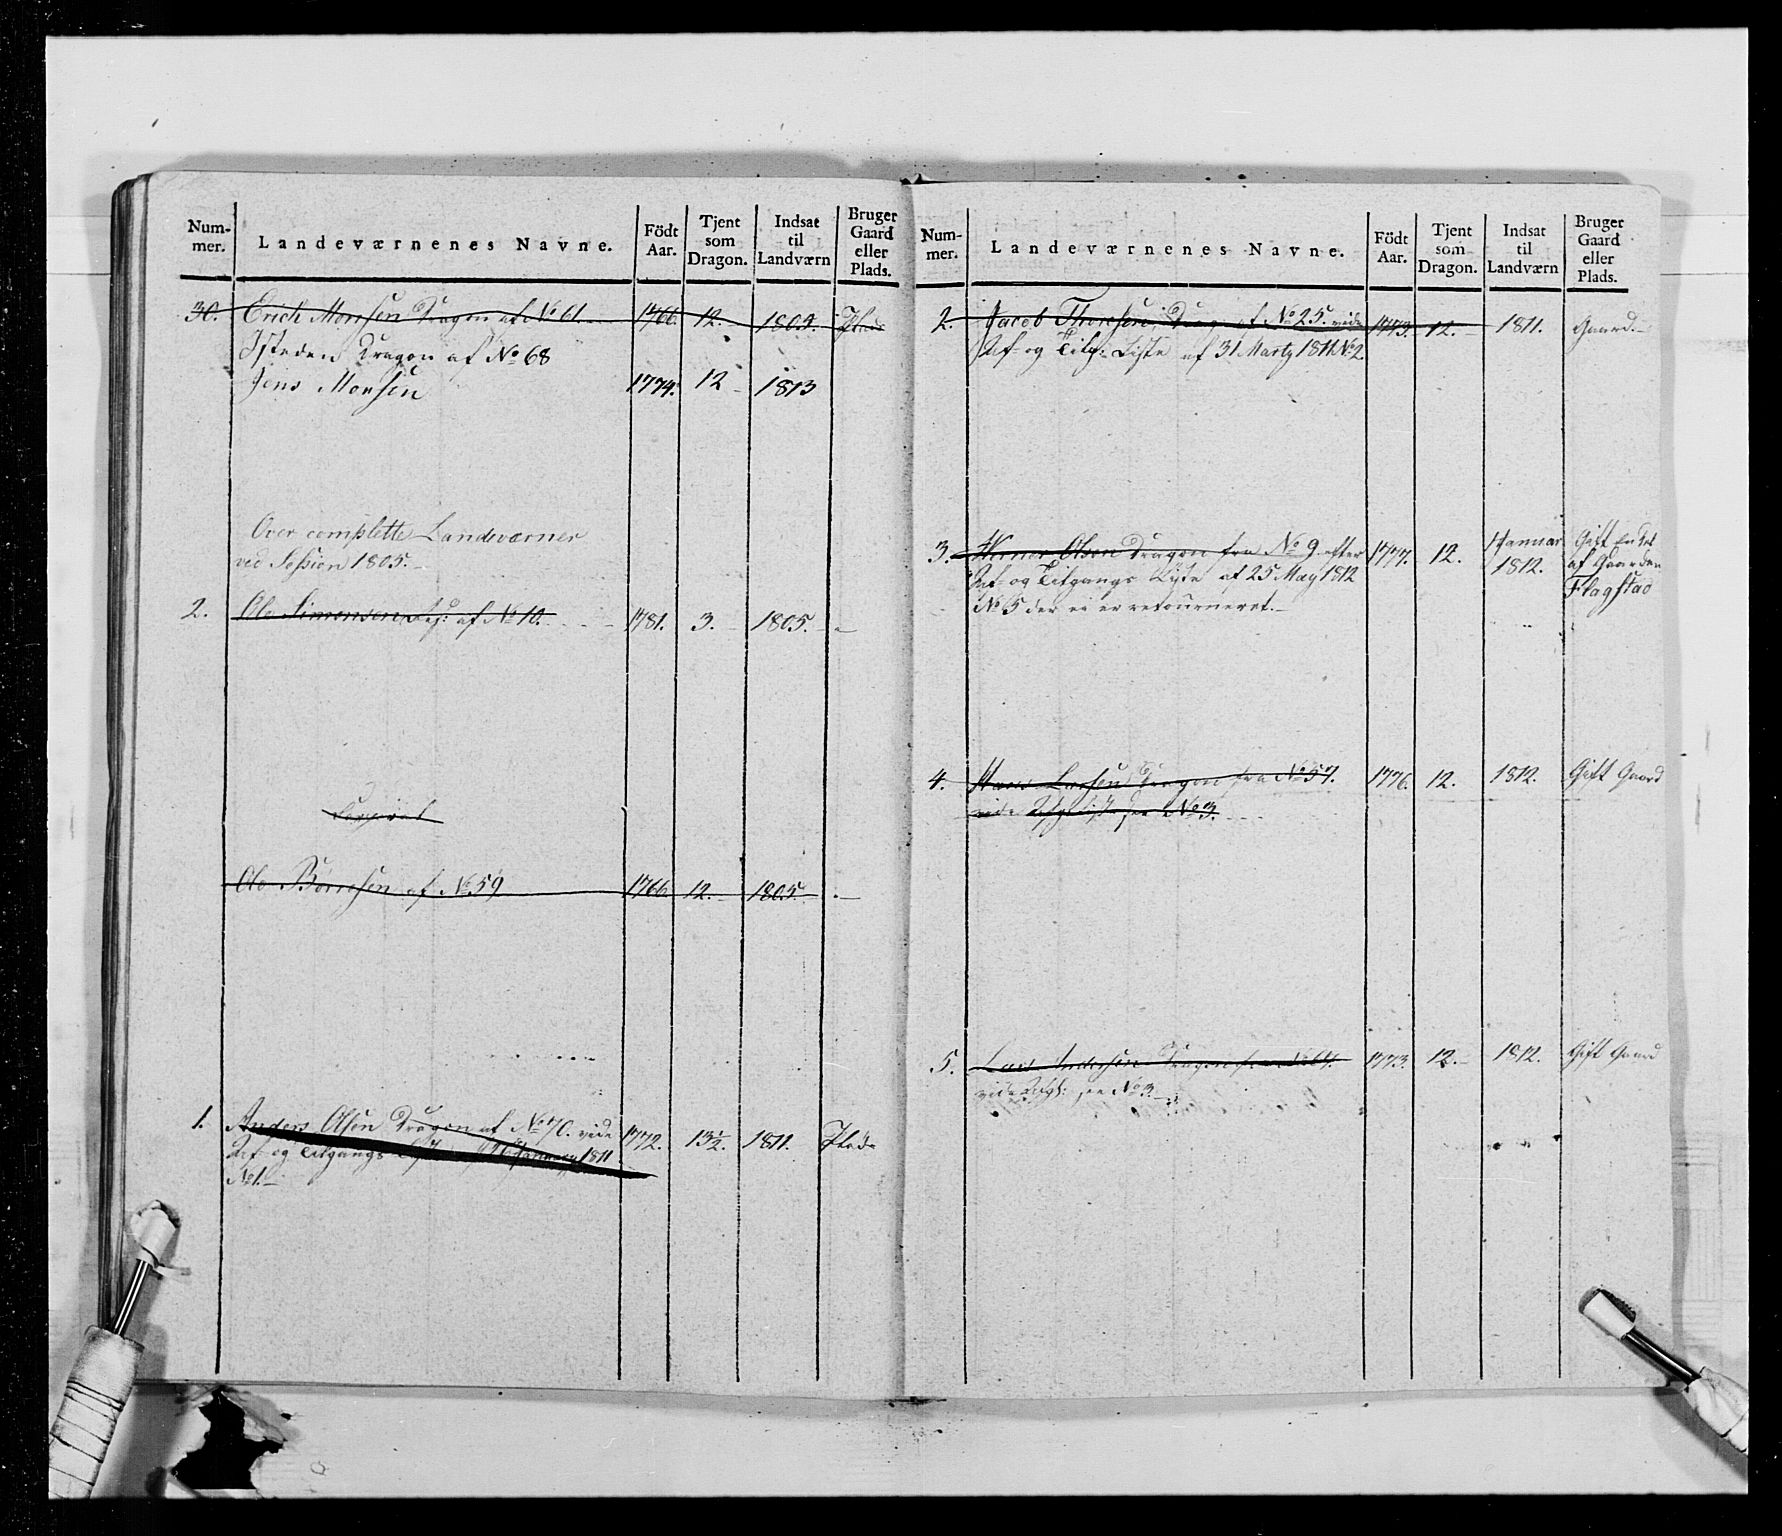 Num-
mer.
Landeværnenes Navne.
Födt
Aar.
Tjent
som
Dragon.
Indsat
til
Landværn
Bruger
Gaard
eller
Plads.
30. Erich Monsen Dragon af No 61. 1766. 12. 1805. Plads
Isteden Dragon af No 68
Jens Monsen 1774. 12 1813
Over complette Landeværner
ved Session 1805.
2. Ole Simonsen af No 10. 1781. 3. 1805.
Corporal
Ole Börresen af No 59 1766 12. 1805.
1. Anders Olsen Dragon af No 70. vide 1772. 13½. 1811. Plads
Af- og Tilgangs Liste 1811
No 1.
Num-
mer.
Landeværnenes Navne.
Födt
Aar.
Tjent
som
Dragon.
Indsat
til
Landværn
Bruger
Gaard
eller
Plads.
2. Jacob Thoresen, Drag. af No 25. vide 1773. 12. 1811. Gaard.
Af- og Tilg: Liste af 31 Marty 1811 No 2.
3. Olsen Dragon fra No 9 efter 1777. 12. Januar 1812. Gift
Af- og Tilgangs Liste af 25 May 1812 af Gaarden
No 5 der ei er retourneret. Flagstad
4. Hans Larsen Dragon fra No 57. 1776. 12. 1812. Gift Gaard
vide No 3.
5. Lars Andersen Dragon fra No 64. 1773. 12. 1812. Gift Gaard
vide No 3.